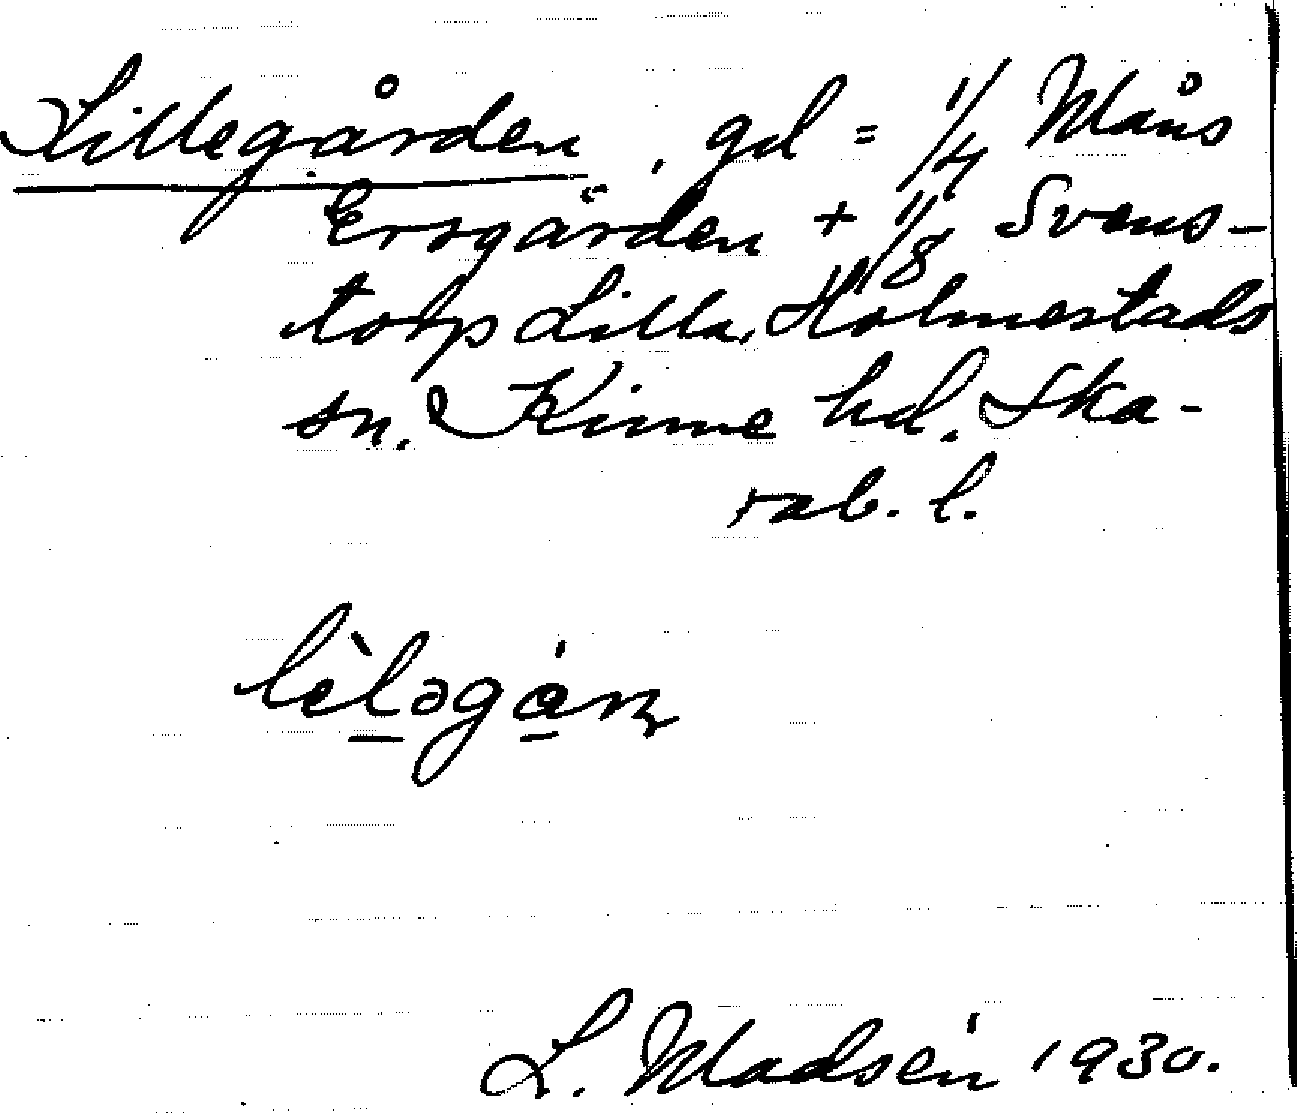 Lillegården, gd = 1/4 Måns
Ersgården + 1/8 Svens-
torp Lilla, Holmestads
sn. Kinne hd. Ska-
rab. l.
lèləgán
L. Madsén 1930.